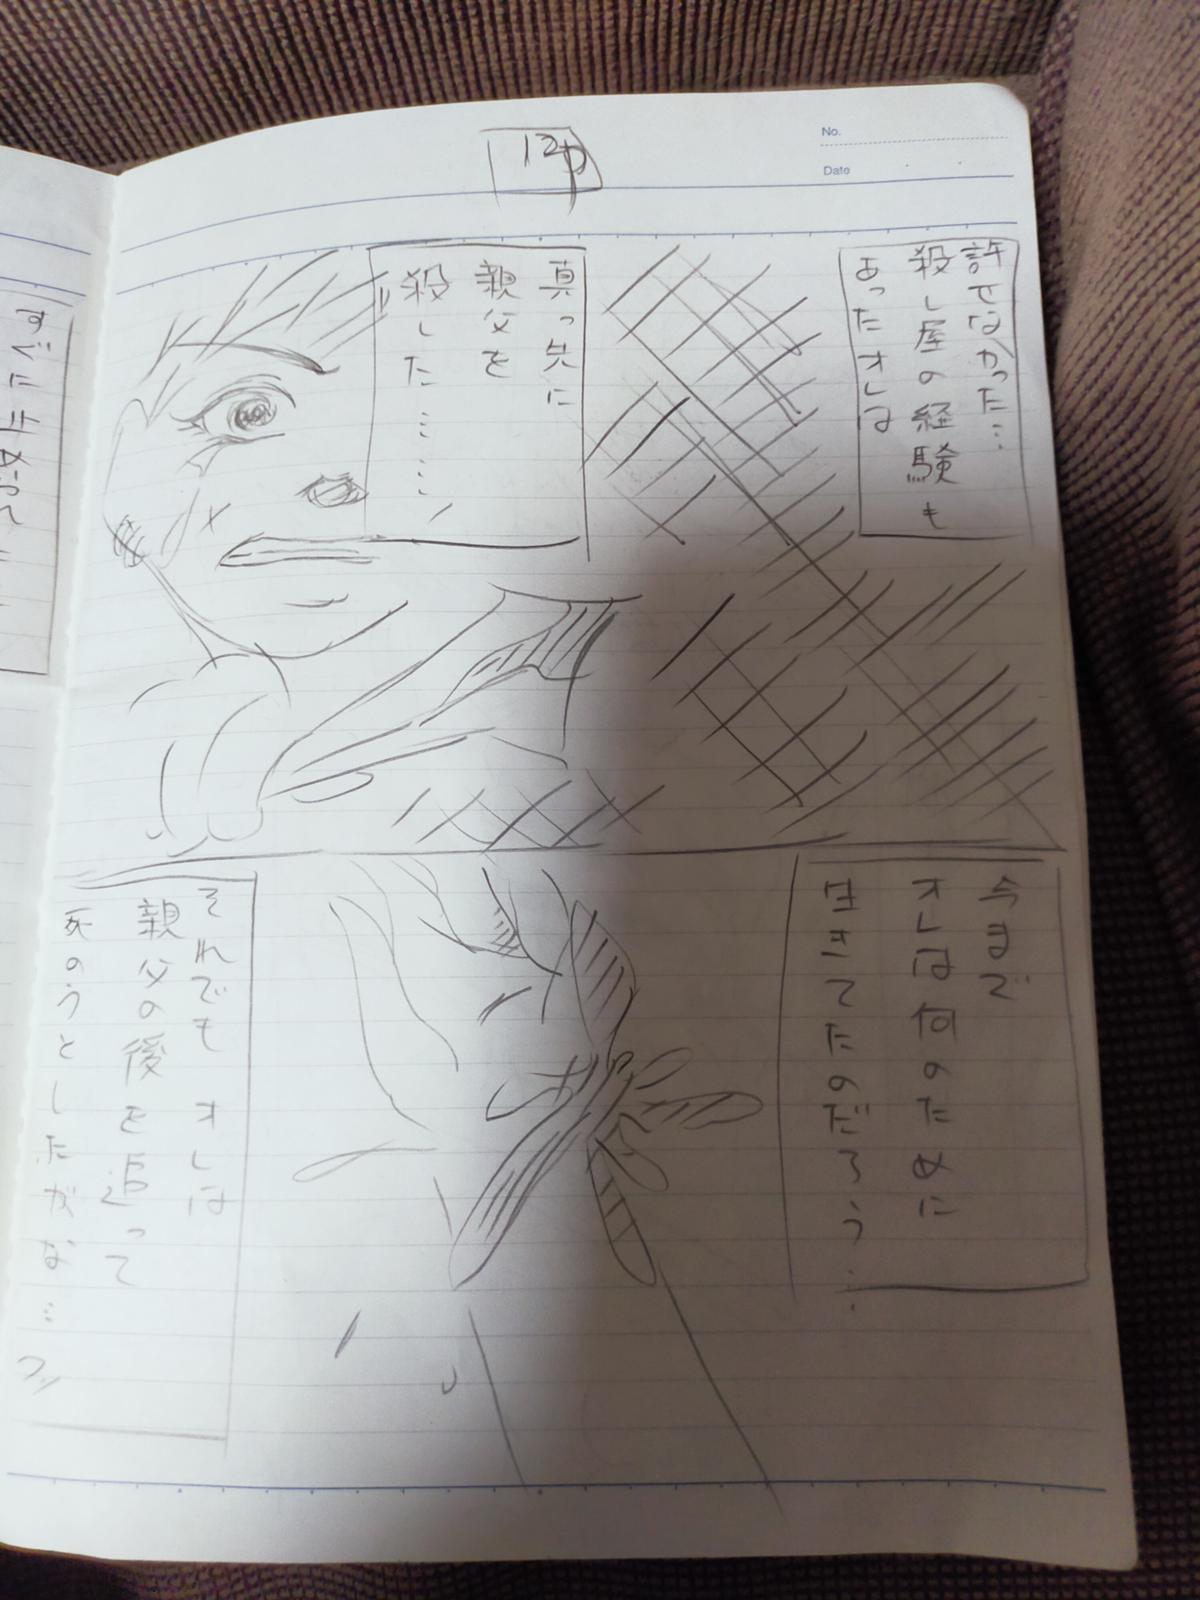 12p
No.
Date
許せなかった…
殺し屋の経験も
あったオレは
真っ先に
親父を
殺した……
今まで
オレは何のために
生きてたのだろう…
それでも オレは
親父の後を追って
死のうとしたがな…フッ